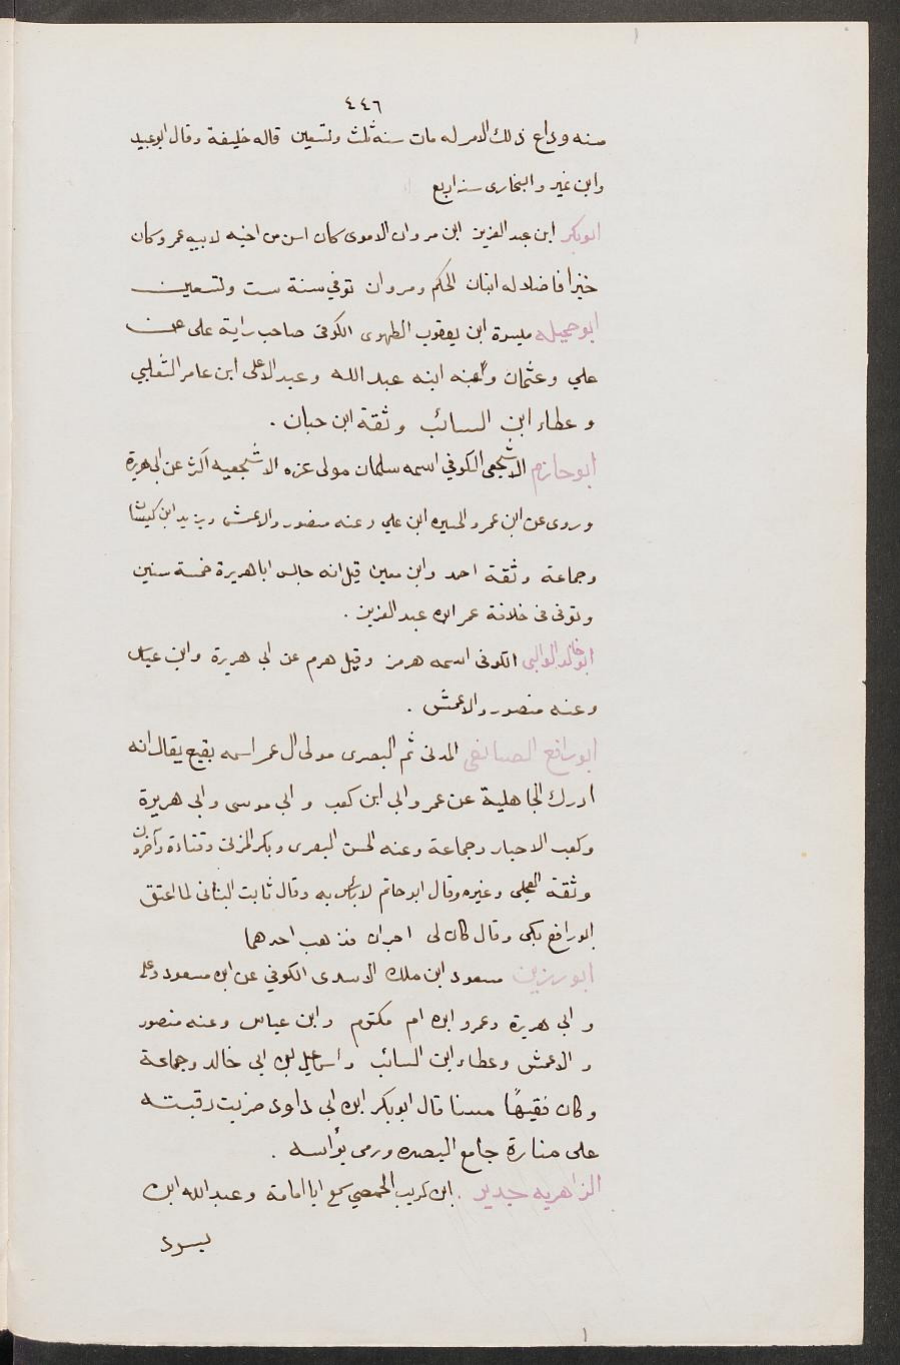 ٤٤٦
منه وداع ذلك الامر له مات سنه ثلث وتسعين قاله خليفة وقال ابوعبيد
وابن نمير والبخارى سنه اربع
ابوبكر ابن عبد العزيز ابن مروان الاموى كان اسن من اخيه لابيه عمر وكان
خيرا فاضلا له ابنان الحكم ومروان توفي سنة ست وتسعين
ابو جميله ميسرة ابن يعقوب الطهوى الكوفى صاحب راية على عن
علي وعثمان وعنه ابنه عبد الله وعبد الاعلى ابن عامر الثعلبي
وعطاء ابن السائب وثقة ابن حبان .
ابو حازم الاشجعى الكوفي اسمه سلمان مولى عزه الاشجعيه اكثر عن ابى هريرة
وروى عن ابن عمر والحسين ابن علي وعنه منصور والاعمش ويزيد ابن كيسان
وجماعة وثقة احمد وابن معين قيل انه جالس ابا هريرة خمسة سنين
وتوفى فى خلافة عمر ابن عبد العزيز .
ابو خالد الوالبى الكوفى اسمه هرمز وقيل هرم عن ابى هريرة وابن عباس
وعنه منصور والاعمش .
ابو رافع الصائغى المدنى ثم البصرى مولى ال عمر اسمه بقيع يقال انه
ادرك الجاهلية عن عمر وابي ابن كعب و ابي موسى وابى هريرة
وكعب الاحبار وجماعة وعنه الحسن البصرى وبكر المزنى وقتادة وآخرون
وثقة العجلى وغيره وقال ابو حاتم لا بأس به وقال ثابت البنانى لما اعتق
ابو رافع بكى وقال كان لى اجران فذهب احدهما
ابو رزين مسعود ابن ملك الاسدى الكوفي عن ابن مسعود وعلى
و ابي هريرة وعمرو ابن ام مكتوم وابن عباس وعنه منصور
و الاعمش وعطاء ابن السائب واسماعيل ابن ابى خالد وجماعة
وكان فقيهًا مسنا قال ابو بكر ابن ابى داود ضربت رقبته
على منارة جامع البصره ورمى برأسه .
الزاهريه حدير . ابن كريب الحمصي سمع ابا امامة وعبد الله ابن
بسر